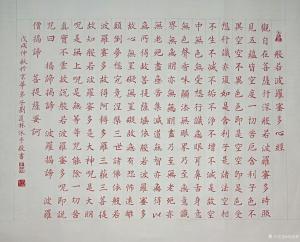 般若波羅蜜多心經
觀自在菩薩行深般若波羅蜜多時照
見五蘊皆空度一切苦厄舍利子色不
異空空不異色色即是空空即是色受
想行識亦復如是舍利子是諸法空相
不生不滅不垢不淨不增不減是故空
中無色無受想行識無眼耳鼻舌身意
無色聲香味觸法無眼界乃至無意識
界無無明亦無無明盡乃至無老死亦
無老死盡無苦集滅道無智亦無得以
無所得故菩提薩埵依般若波羅蜜多
故心無罣礙無罣礙故無有恐怖遠離
顛倒夢想究竟涅槃三世諸佛依般若
波羅蜜多故得阿耨多羅三藐三菩提
故知般若波羅蜜多是大神咒是大明
咒是無上咒是無等等咒能除一切苦
真實不虛故說般若波羅蜜多咒即說
咒曰 揭諦揭諦 波羅揭諦 波羅
僧揭諦 菩提薩婆訶
戊戌仲秋於京華弟子劉道林沐手敬書